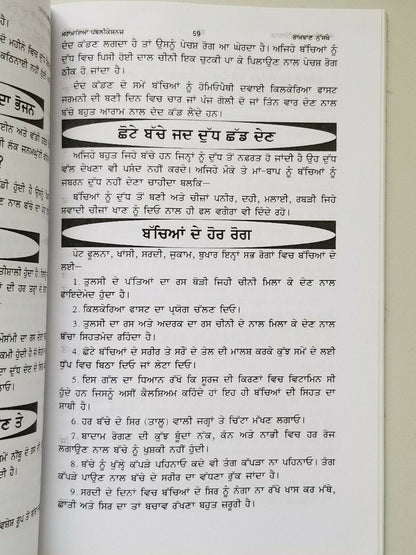 ਭਰਾਮਾਇਆ ਪਬਲੀਕੇਸ਼ਨਜ਼ 59 ਰਾਮਬਾਣ ਨੁਸਖੇ
ਦੰਦ ਕੱਢਣ ਲਗਦਾ ਹੈ ਤਾਂ ਉਸਨੂੰ ਪੇਚਸ਼ ਰੋਗ ਆ ਘੇਰਦਾ ਹੈ। ਅਜਿਹੇ ਬੱਚਿਆਂ ਨੂੰ
ਦੁੱਧ ਵਿਚ ਪਿਸੀ ਹੋਈ ਦਾਲ ਚੀਨੀ ਇਕ ਚੁਟਕੀ ਪਾ ਕੇ ਪਿਲਾਉਣ ਨਾਲ ਪੇਚਸ਼ ਰੋਗ
ਠੀਕ ਹੋ ਜਾਂਦਾ ਹੈ।
ਦੰਦ ਕੱਢਣ ਦੇ ਸਮੇਂ ਬੱਚਿਆਂ ਨੂੰ ਹੋਮਿਓਪੈਥੀ ਦਵਾਈ ਕਿਲਕੇਰਿਆ ਫਾਸਟ
ਜਰਮਨੀ ਦੀ ਬਣੀ ਦਿਨ ਵਿਚ ਚਾਰ ਜਾਂ ਪੰਜ ਗੋਲੀ ਦੋ ਜਾਂ ਤਿੰਨ ਵਾਰ ਦੇਣ ਨਾਲ
ਬੱਚੇ ਬਹੁਤ ਆਰਾਮ ਨਾਲ ਦੰਦ ਕੱਢ ਲੈਂਦੇ ਹਨ।
ਛੋਟੇ ਬੱਚੇ ਜਦ ਦੁੱਧ ਛੱਡ ਦੇਣ
ਅਜਿਹੇ ਬਹੁਤ ਜਿਹੇ ਬੱਚੇ ਹਨ ਜਿਨ੍ਹਾਂ ਨੂੰ ਦੁੱਧ ਤੋਂ ਨਫ਼ਰਤ ਹੋ ਜਾਂਦੀ ਹੈ ਉਹ ਦੁੱਧ
ਵੱਲ ਦੇਖਣਾ ਵੀ ਪਸੰਦ ਨਹੀਂ ਕਰਦੇ। ਅਜਿਹੇ ਮੌਕੇ ਤੇ ਮਾਂ-ਬਾਪ ਨੂੰ ਬੱਚਿਆਂ ਨੂੰ
ਜਬਰਨ ਦੁੱਧ ਨਹੀਂ ਦੇਣਾ ਚਾਹੀਦਾ ਬਲਕਿ—
ਬੱਚਿਆਂ ਨੂੰ ਦੁੱਧ ਤੋਂ ਬਣੀ ਅਤੇ ਚੀਜ਼ਾਂ ਪਨੀਰ, ਦਹੀ, ਮਲਾਈ, ਰਬੜੀ ਜਿਹੇ
ਸਵਾਦੀ ਚੀਜ਼ਾਂ ਖਾਣ ਨੂੰ ਦਿਓ ਨਾਲ ਹੀ ਫਲ ਵਗੈਰਾ ਵੀ ਦਿੰਦੇ ਰਹੋ।
ਬੱਚਿਆਂ ਦੇ ਹੋਰ ਰੋਗ
ਪੇਟ ਫੂਲਨਾ, ਖਾਂਸੀ, ਸਰਦੀ, ਜੁਕਾਮ, ਬੁਖਾਰ ਇਨ੍ਹਾਂ ਸਭ ਰੋਗਾਂ ਵਿਚ ਬੱਚਿਆਂ ਦੇ
ਲਈ—
1. ਤੁਲਸੀ ਦੇ ਪੱਤਿਆਂ ਦਾ ਰਸ ਥੋੜੀ ਜਿਹੀ ਚੀਨੀ ਮਿਲਾ ਕੇ ਦੇਣ ਨਾਲ
ਫਾਇਦੇਮੰਦ ਹੁੰਦਾ ਹੈ।
2. ਕਿਲਕੇਰਿਆ ਫਾਸਟ ਦਾ ਪ੍ਰਯੋਗ ਚੱਲਣ ਦਿਓ।
3. ਤੁਲਸੀ ਦਾ ਰਸ ਅਤੇ ਅਦਰਕ ਦਾ ਰਸ ਚੀਨੀ ਦੇ ਨਾਲ ਮਿਲਾ ਕੇ ਦੇਣ ਨਾਲ
ਬੱਚਾ ਸਿਹਤਮੰਦ ਰਹਿੰਦਾ ਹੈ।
4. ਛੋਟੇ ਬੱਚਿਆਂ ਦੇ ਸਰੀਰ ਤੇ ਸਰੋਂ ਦੇ ਤੇਲ ਦੀ ਮਾਲਸ਼ ਕਰਕੇ ਕੁੱਝ ਸਮੇਂ ਦੇ ਲਈ
ਧੁੱਪ ਵਿਚ ਬਿਠਾ ਦਿਓ ਜਾਂ ਲੇਟਾ ਦਿਓ।
5. ਇਸ ਗੱਲ ਦਾ ਧਿਆਨ ਰੱਖੋ ਕਿ ਸੂਰਜ ਦੀ ਕਿਰਣਾਂ ਵਿਚ ਵਿਟਾਮਿਨ ਸੀ
ਹੁੰਦੇ ਹਨ ਜਿਸਨੂੰ ਅਸੀਂ ਕੈਲਸ਼ਿਅਮ ਕਹਿੰਦੇ ਹਾਂ ਇਹ ਹੀ ਬੱਚਿਆਂ ਦੀ ਸਿਹਤ ਦਾ
ਸਾਥੀ ਹੈ।
6. ਹਰ ਬੱਚੇ ਦੇ ਸਿਰ (ਤਾਲੂ) ਵਾਲੀ ਜਗ੍ਹਾ ਤੇ ਚਿੱਟਾ ਮੱਖਣ ਲਗਾਓ।
7. ਬਾਦਾਮ ਰੋਗਣ ਦੀ ਕੁੱਝ ਬੂੰਦਾਂ ਨੱਕ, ਕੰਨ ਅਤੇ ਨਾਭੀ ਵਿਚ ਹਰ ਰੋਜ਼
ਲਗਾਉਣ ਨਾਲ ਬੱਚੇ ਨੂੰ ਖੁਸ਼ਕੀ ਨਹੀਂ ਹੁੰਦੀ।
8. ਬੱਚੇ ਨੂੰ ਖੁੱਲ੍ਹੇ ਕੱਪੜੇ ਪਹਿਨਾਓ ਕਦੇ ਵੀ ਤੰਗ ਕੱਪੜਾ ਨਾ ਪਹਿਨਾਓ। ਤੰਗ
ਕੱਪੜੇ ਪਾਉਣ ਨਾਲ ਬੱਚੇ ਦੇ ਸਰੀਰ ਦਾ ਵਧਣਾ ਰੁੱਕ ਜਾਂਦਾ ਹੈ।
9. ਸਰਦੀ ਦੇ ਦਿਨਾਂ ਵਿਚ ਬੱਚਿਆਂ ਦੇ ਸਿਰ ਨੂੰ ਨੰਗਾ ਨਾ ਰੱਖੋ ਖਾਸ ਕਰ ਮੱਥੇ,
ਛਾਤੀ ਅਤੇ ਸਿਰ ਦਾ ਤਾਂ ਬਚਾਵ ਰੱਖਣਾ ਬਹੁਤ ਜ਼ਰੂਰੀ ਹੈ।